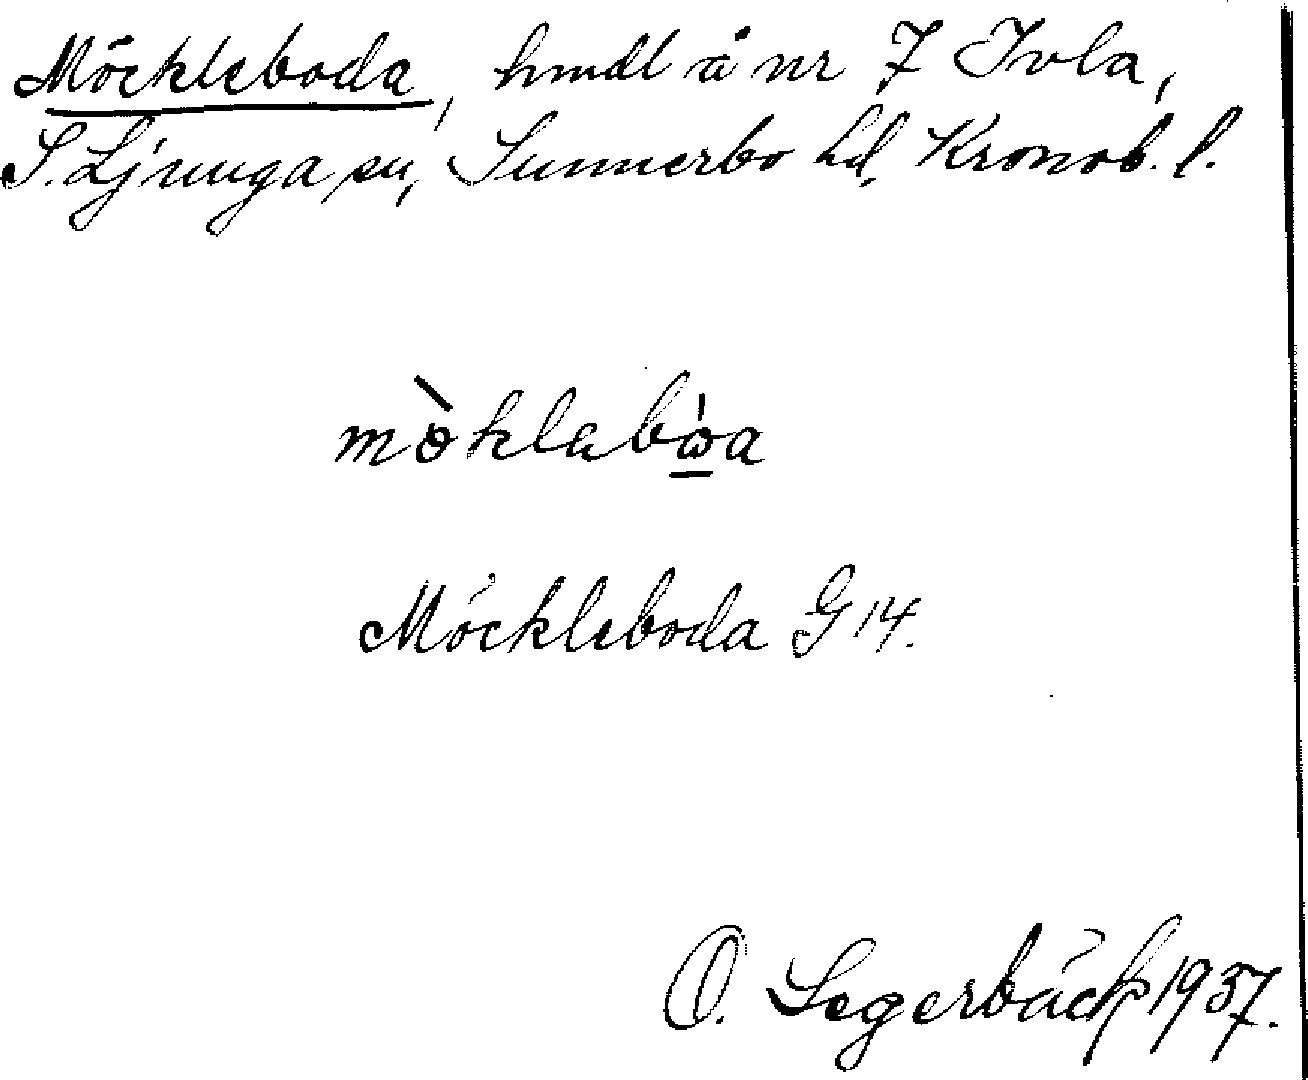 Möckleboda, hmdl å nr 7 Ivla,
S. Ljunga sn, Sunnerbo hd, Kronob. l.
Möckleboda G 14.
O. Segerbäck 1937.